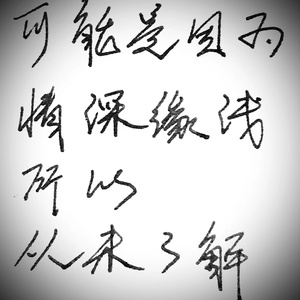 可能是因为
情深缘浅
所以
从未了解